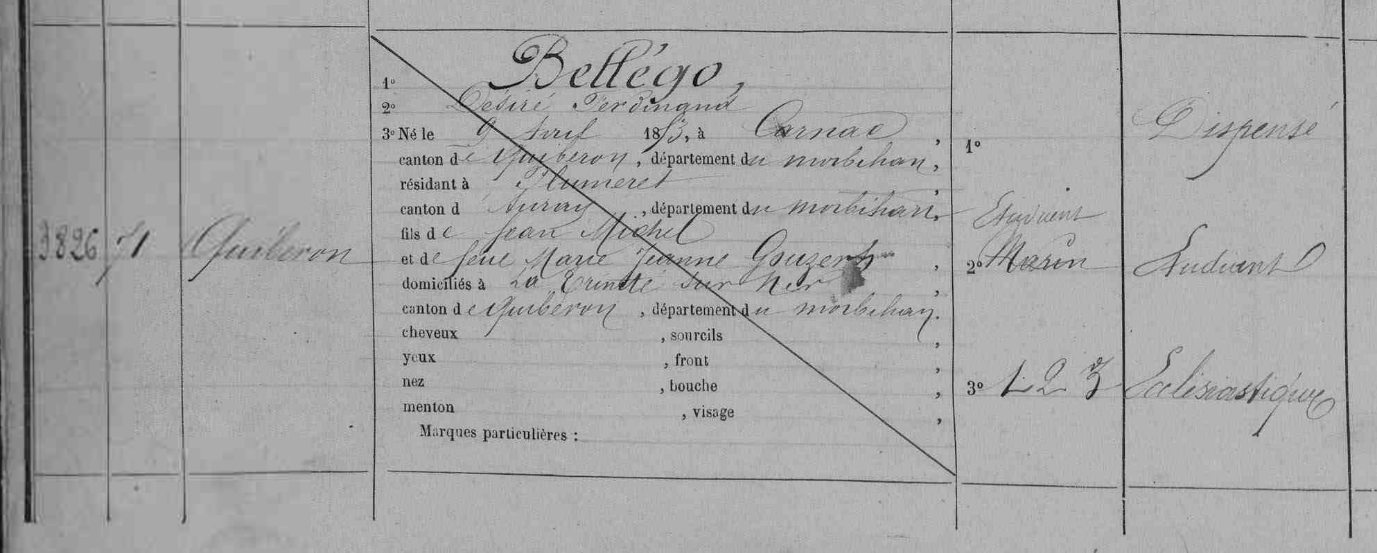 3826 71 Quiberon
1º Bellégo,
2º Désiré Ferdinand
3º Né le 9 Avril 1853, à Carnac,
canton de Quiberon, département du morbihan,
résidant à Pluméret,
canton d Auray, département du morbihan,
fils de Jean Michel
et de feue Marie Jeanne
domiciliés à La Trinité Sur Mer,
canton de Quiberon, département du morbihan.
cheveux , sourcils ,
yeux , front ,
nez , bouche ,
menton , visage ,
Marques particulières :
1º
Etudiant
2º Marin
3º 1 2 3
Dispensé
Etudiant
Ecclésiastique